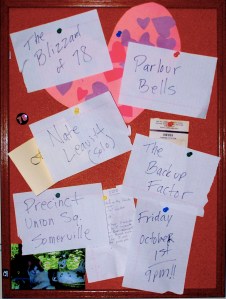 The
Blizzard
of 78
Parlour
Bells
Nate
Leavitt
(solo)
The
Backup
Factor
Precinct
Union Sq.
Somerville
Friday
October
1st
9pm!!